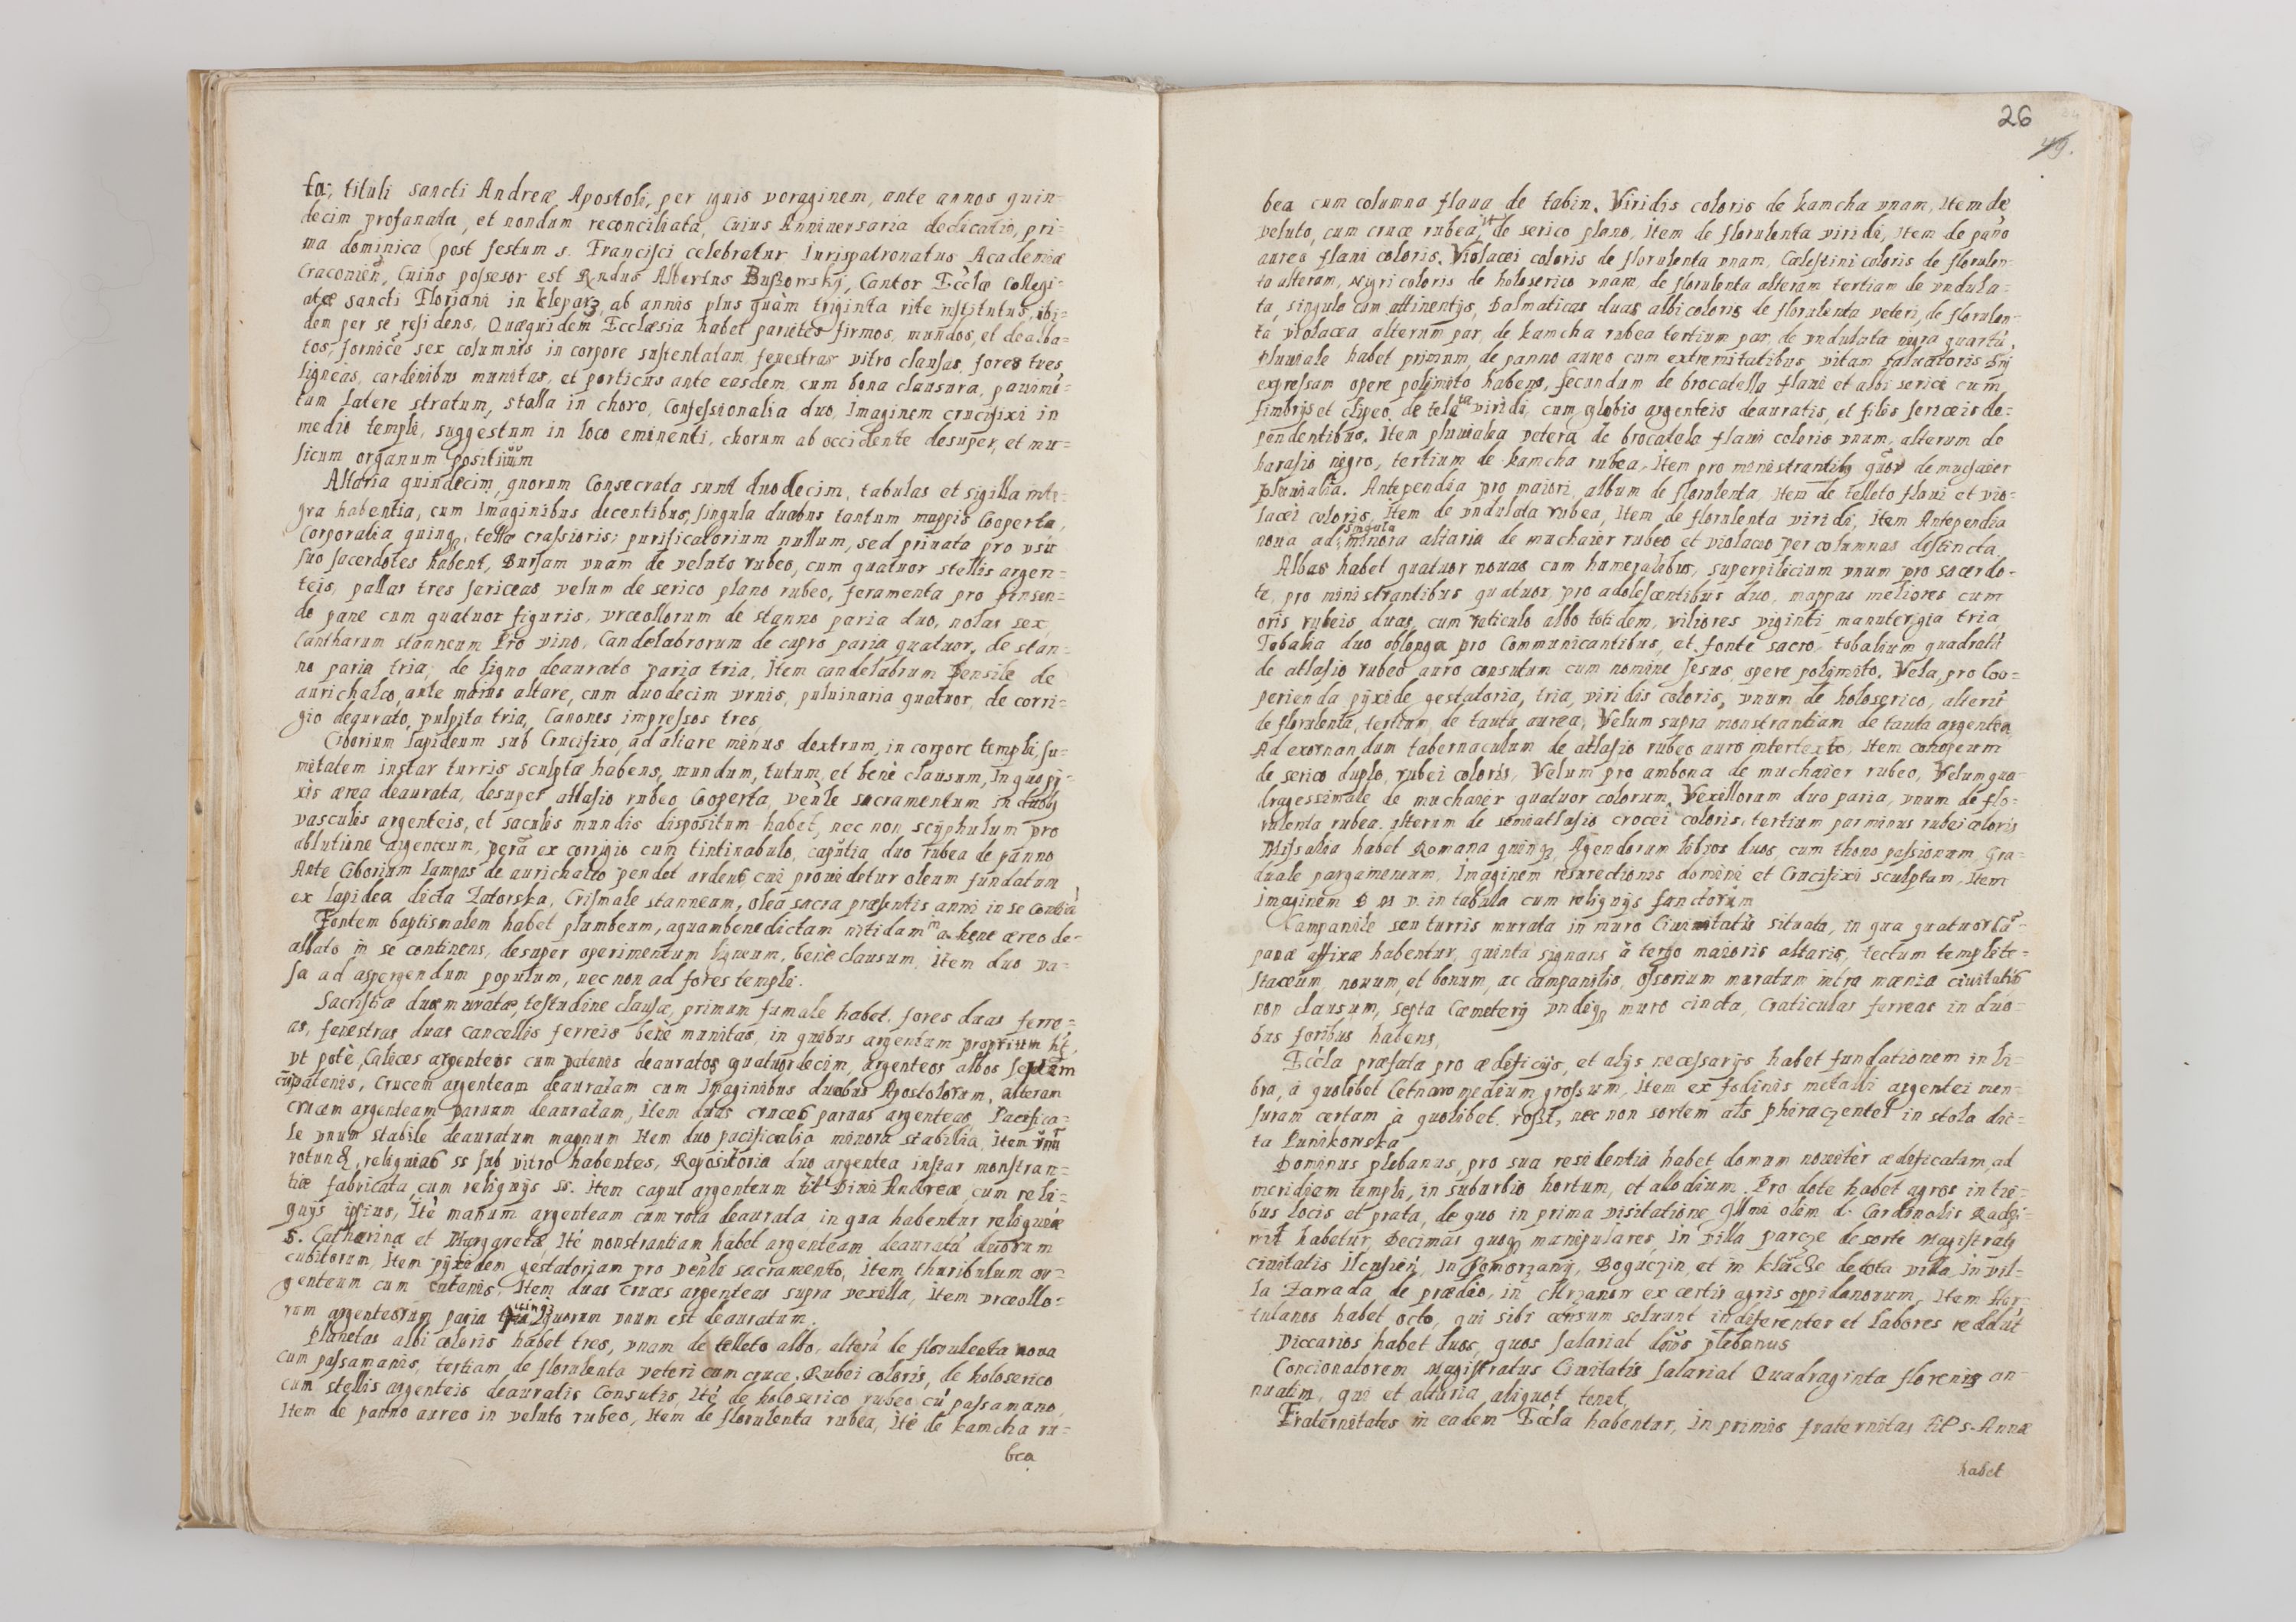 ta, tituli sancti Andreæ Apostoli, per ignis voraginem, ante annos quin-
decim profanata, et nondum reconciliata, Cuius Anniuersaria dedicatio, pri-
ma dominica post festum s. Francisci celebratur Iurispatronatus Academiæ
Craconien, Cuius possesor est Rndus Albertus Bußowskÿ, Cantor Eccłæ Collegi-
atæ sancti Floriani in Klepar, ab annis plus quàm triginta rite institutus, ibi-
dem per se residens, Quæquidem Ecclæsia habet parietes firmos, mundos, et dealba=
tos, fornice sex columnis in corpore sustentatam, fenestras vitro clausas, fores tres
ligneas, cardinibus munitas, et porticus ante easdem cum bona clausura, pauimē=
tum latere stratum, stalla in choro, Confessionalia duo, Imaginem crucifixi in
medio templi, suggestum in loco eminenti, chorum ab occidente desuper, et mu=
sicum organum positiuum
Altaria quindecim, quorum Consecrata sunt duodecim, tabulas et sigilla inte=
gra habentia, cum Imaginibus decentibus, singula duabus tantum mappis Cooperta,
Corporalia quinq, tellæ crassioris, purificatorium nullum, sed priuata pro vsu
suo sacerdotes habent, Bursam vnam de veluto rubeo, cum quatuor stellis argen=
teis, pallas tres sericeas, velum de serico plano rubeo, feramenta pro pinsen=
do pane cum quatuor figuris, vrceollorum de stanno paria duo, nolas sex
Cantharum stanneum Pro vino, Candelabrorum de cupro paria quatuor, de stan=
no paria tria, de ligno deaurato paria tria, Item candelabrum Pensile de
aurichalco, ante maius altare, cum duodecim vrnis, puluinaria quatuor, de corri=
gio deaurato, pulpita tria, Canones impressos tres,
Ciborium lapideum sub Crucifixo, ad altare minus dextrum, in corpore templi, su=
mitatem instar turris sculptæ habens, mundum, tutum, et benè clausum, In quo pÿ-
xis ærea deaurata, desuper atlasio rubeo Cooperta, venle sacramentum in duobq
vasculis argenteis, et saculis mundis dispositum habet, nec non scÿphulum pro
ablutione argenteum, pera ex corrigio cum tintinabulo, caputia duo rubea de panno
Ante Ciborium lampas de aurichalco pendet ardens cui prouidetur oleum fundatum
ex lapidea dicta Zatorska, Crismale stanneum, olea sacra præsentis anni in se Contia
Fontem baptismalem habet plumbeum, aquambenedictam nitidam in ahene æreo de-
albato in se continens, desuper operimentum ligneum, benè clausum, Item duo va=
sa ad aspergendum populum, nec non ad fores templi.
Sacristiæ duæ muratæ, testudine clausæ, primum fumale habet, fores duas ferre=
as, fenestras duas cancellis ferreis benè munitas, in quibus argentum proprium ht,
vt potè, Calices argenteos cum patenis deauratos quatuordecim, argenteos albos septem
cūpatenis, Crucem argenteam deauratam cum Imaginibus duobus Apostolorum, alteram
crucem argenteam paruam deauratam, Item duas cruces paruas argenteas, Pacifica-
le vnum stabile deauratum magnum Item duo pacificalia minora stabilia, Item vnū
rotund, reliquias ss sub vitro habentes, Repositoria duo argentea instar monstran=
tiæ fabricata, cum reliquijs ss. Item caput argenteum tit Diui Andreæ, cum reli=
quijs ipsius, Itē manum argenteam cum rota deaurata, in qua habentur reliquiæ
S. Catharinæ et Margaretæ, Itē monstrantiam habet argenteam deauratā duorum
cubitorum, Item pÿxidem gestatoriam pro venle sacramento, Item thuribulum ar=
genteum cum catenis, Item duas cruces argenteas supra vexilla, Item vrceollo=
rum argenteorum paria quinq quorum vnum est deauratum.
Planetas albi coloris habet tres, vnam de telleto albo, alterā de florulenta noua
cum passamanis, tertiam de florulenta veteri cum cruce. Rubei coloris, de holoserico
cum stellis argenteis deauratis Consutis, Itē de holoserico rubeo cū passamano,
Item de panno aureo in veluto rubeo, Item de florulenta rubea, Itē de kamcha ru=
bea
26
49.
bea cum columna flaua de tabin. Viridis coloris de kamcha vnam, Item de
veluto, cum cruce rubea, Itē de serico plano, Item de florulenta viridi, Item de pano
aureo flaui coloris. Violacei coloris de florulenta vnam, Cælestini coloris de florulen-
ta alteram, Nigri coloris de holoserico vnam, de florulenta alteram tertiam de vndula-
ta, singulo cum attinentijs, Dalmaticas duas albi coloris de florulenta veteri, de florulen-
ta violacea alterum par, de kamcha rubea tertium par, de vndulata nigra quartū.
Pluuiale habet primum de panno aureo cum extremitatibus vitam saluatoris Dni
expressam opere polimito habens, secundum de brocatella flaui et albi serici cum
fimbrijs et clipeo de tela viridi, cum globis argenteis deauratis, et filis sericeis de=
pendentibus. Item pluuialia vetera de brocatela flaui coloris vnum, alterum de
harasio nigro, tertium de kamcha rubea, Item pro ministrantibq quor de muchaier
pluuialia. Antependia pro maiori album de florulenta, Item de telleto flaui et vio=
lacei coloris, Item de vndulata rubea, Item de florulenta viridi, Item Antependia
noua ad singula minora altaria de muchaier rubeo et violaceo per columnas distincta
Albas habet quatuor nouas cum humeralibus, superpilicium vnum pro sacerdo-
te, pro ministrantibus quatuor, pro adolescentibus duo, mappas meliores cum
oris rubeis duas, cum reticulo albo totidem, viliores viginti, manutergia tria,
Tobalia duo oblonga pro Communicantibus, et fonte sacro, tobalium quadratū
de atlasio rubeo auro consutum cum nomine Jesus opere polimito. Vela, pro Coo=
perienda pÿxide gestatoria, tria, viridis coloris, vnum de holoserico, alterū
de florulenta, tertium de tauta aurea, Velum supra monstrantiam de tauta argentea,
Ad exornandum tabernaculum de atlasio rubeo auro intertexto, Item conopeum
de serico duplo, rubei coloris, Velum pro ambona de muchaier rubeo, Velum qua-
dragessimale de muchaier quatuor colorum, Vexillorum duo paria, vnum de flo=
rulenta rubea, alterum de semiatlasio crocei coloris, tertium par minus rubei coloris
Missalia habet Romana quinq, Agendorum libros duos, cum thono passionum, Gra=
duale pargamenum, Imaginem resurectionis domini et Crucifixi sculptam, Item
imaginem B M V. in tabula cum reliquijs sanctorum
Campanile seu turris murata in muro Ciuitatis situata, in qua quatuor Cā-
panæ affixæ habentur, quinta signans à tergo maioris altaris, tectum templi te=
staceum, nouum, et bonum, ac campanilis, ossorium muratum intra mænia ciuitatis
non clausum, septa Cæmeterij vndiq muro cincta, Craticulas ferreas in duo=
bus foribus habens,
Eccla præfata pro ædificijs, et alijs necessarijs habet fundationem in li=
bra, à quolibet Cetnaro medium grossum, Item ex fodinis metalli argentei men=
suram certam à quolibet roßt, nec non sortem als phiraczenter in stola dic=
ta Punikowska
Dominus plebanus, pro sua residentia habet domum nouitèr ædificatam, ad
meridiem templi, in suburbio hortum, et alodium. Pro dote habet agros in tri=
bus locis et prata, de quo in prima visitatione Illmi olim d. Cardinalis Radzi=
wił habetur, Decimas quoq manipulares, In villa parcze de sorte Magistratq
ciuitatis Ilcusien, In Pomorzanÿ, Boguczin, et in kluicze de tota villa, In vil=
la Zarrada, de prædio, in Mrzanow ex certis agris oppidanorum, Item Hor=
tulanos habet octo, qui sibi censum soluunt indiferenter et labores reddūt
Viccarios habet duos, quos salariat dnus plebanus
Concionatorem Magistratus Ciuitatis salariat Quadraginta florenis an-
nuatim, qui et altaria aliquot tenet,
Fraternitates in eadem Eccla habentur, in primis fraternitas tit s. Annæ
habet